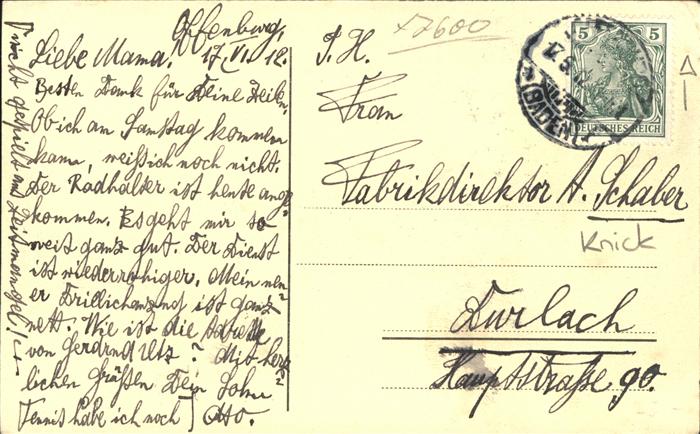 Offenburg,
17. VI. 12.
Liebe Mama.
Besten Dank für Deine Zeilen.
Ob ich am Samstag kommen
kann, weiß ich noch nicht.
Der Radhalter ist heute ange-
kommen. Es geht mir so
weit ganz gut. Der Dienst
ist wieder ruhiger. Mein neu-
er Drillichanzug ist ganz
nett. Wie ist die Adresse
von Utz? Mit herz-
lichen Grüßen Dein Sohn
Otto.
Tennis habe ich noch
nicht gespielt aus Zeitmangel!
x7600
T. H.
Frau
Fabrikdirektor A. Schaber
Knick
Durlach
Hauptstraße 90.
5 5
DEUTSCHES REICH
(BADEN)